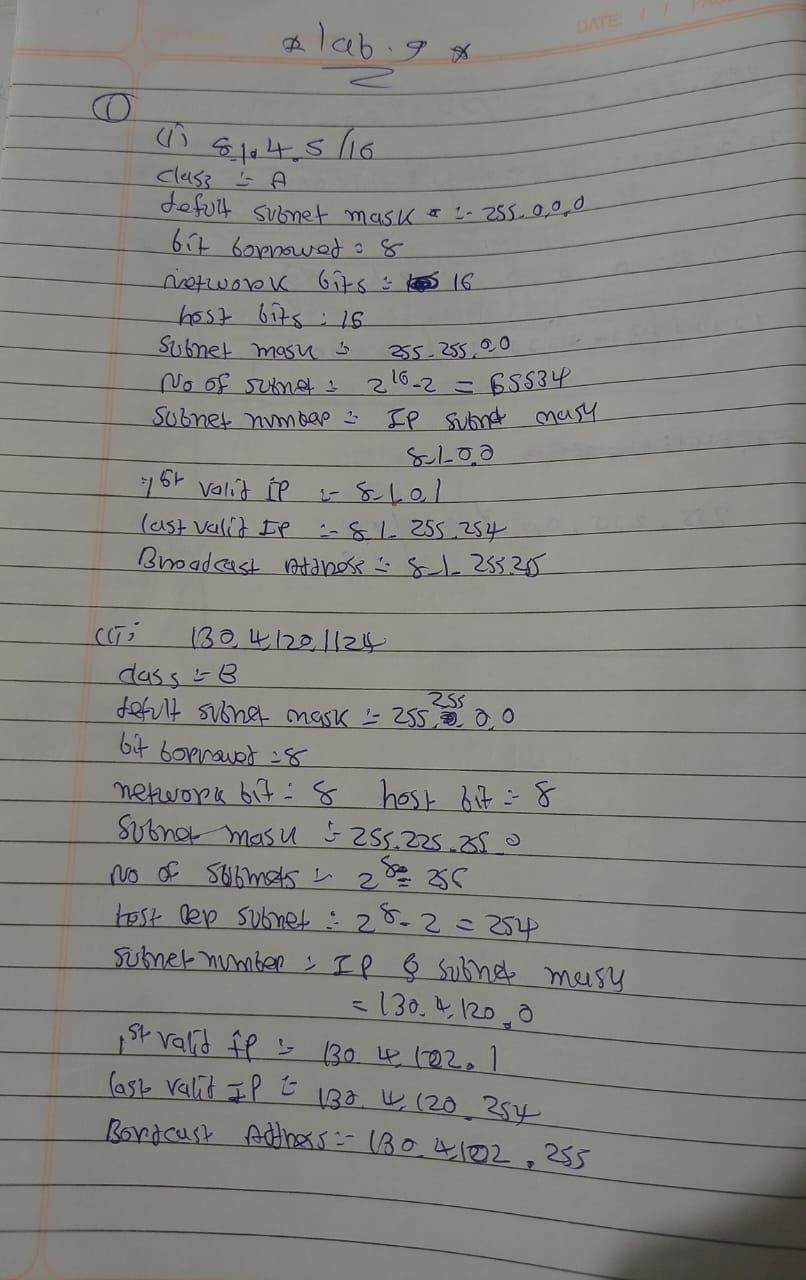 * lab. 9 *
DATE: / / PAG
①
(i) 8.1.4.5 /16
class :- A
defult subnet mask * :- 255.0.0.0
bit borrowed : 8
network bits : 16
host bits : 16
Subnet mask : 255.255.0.0
No of subnet : 2^16-2 = 65534
Subnet number :- IP subnet mask
8.1.0.0
1st valid IP :- 8.1.0.1
last valid IP :- 8.1.255.254
Broadcast Address :- 8.1.255.255
(ii) 130.4.120.1/24
class :- B
defult subnet mask :- 255.255.0.0
bit borrowed :8
network bit :- 8 host bit :- 8
Subnet mask :- 255.225.255.0
No of submets :- 2^8 = 256
host per subnet :- 2^8-2 = 254
Subnet number :- IP & subnet mask
= 130.4.120.0
1st valid IP :- 130.4.102.1
last valid IP :- 130.4.120.254
Bordcast Address :- 130.4.102.255